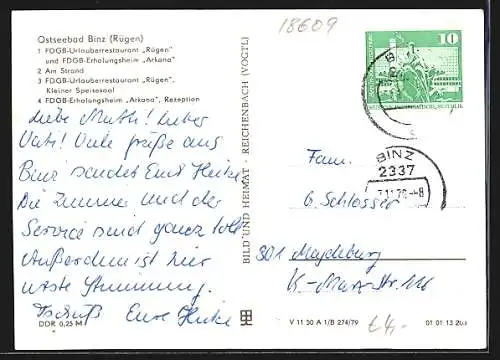 18609
Ostseebad Binz (Rügen)
1 FDGB-Urlauberrestaurant „Rügen"
und FDGB-Erholungsheim „Arkona"
2 Am Strand
3 FDGB-Urlauberrestaurant „Rügen",
Kleiner Speisesaal
4 FDGB-Erholungsheim „Arkona", Rezeption
Liebe Mutti! Lieber
Vati! Viele Grüße aus
Binz sendet Eure Heike
Die Zimmer und der
Service sind ganz toll
Außerdem ist hier
erste Stimmung.
Tschüß Eure Heike
DDR 0,25 M
BILD UND HEIMAT · REICHENBACH (VOGTL)
10
BINZ
2337
Fam.
G. Schlosser
301 Magdeburg
K-Marx-Str. 116
V 11 50 A 1/B 274/79
01 01 13 230
£4,-